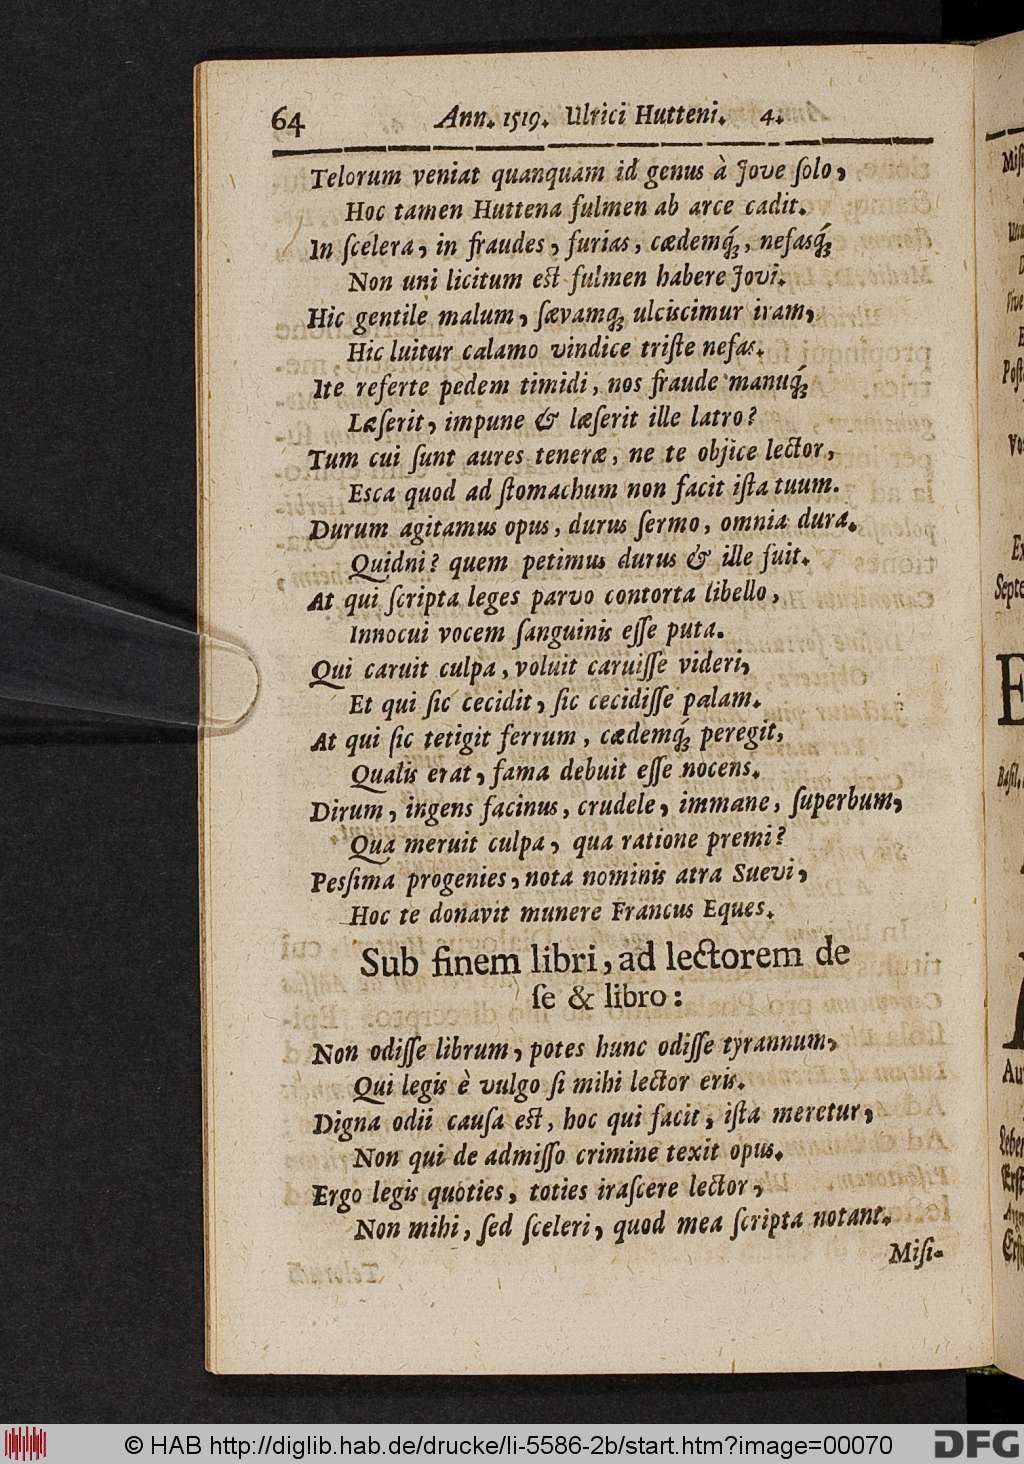 64 Ann. 1519. Ulrici Hutteni. 4.
Telorum veniat quanquam id genus à Jove ſolo,
Hoc tamen Huttena fulmen ab arce cadit.
In ſcelera, in fraudes, furias, cædemq́;, nefasq́;
Non uni licitum eſt fulmen habere Jovi.
Hic gentile malum, ſævamq; ulciscimur iram,
Hic luitur calamo vindice triſte nefas.
Ite referte pedem timidi, nos fraude manuq́;
Læſerit, impune & læſerit ille latro?
Tum cui ſunt aures teneræ, ne te objice lector,
Esca quod ad ſtomachum non facit iſta tuum.
Durum agitamus opus, durus ſermo, omnia dura.
Quidni? quem petimus durus & ille fuit.
At qui ſcripta leges parvo contorta libello,
Innocui vocem ſanguinis eſſe puta.
Qui caruit culpa, voluit caruiſſe videri,
Et qui ſic cecidit, ſic cecidiſſe palam.
At qui ſic tetigit ferrum, cædemq́; peregit,
Qualis erat, fama debuit eſſe nocens.
Dirum, ingens facinus, crudele, immane, ſuperbum,
Qua meruit culpa, qua ratione premi?
Pesſima progenies, nota nominis atra Suevi,
Hoc te donavit munere Francus Eques.
Sub finem libri, ad lectorem de
ſe & libro:
Non odiſſe librum, potes hunc odiſſe tyrannum,
Qui legis è vulgo ſi mihi lector eris.
Digna odii cauſa eſt, hoc qui facit, iſta meretur,
Non qui de admiſſo crimine texit opus.
Ergo legis quoties, toties iraſcere lector,
Non mihi, ſed ſceleri, quod mea ſcripta notant.
Miſi-
© HAB http://diglib.hab.de/drucke/li-5586-2b/start.htm?image=00070
DFG